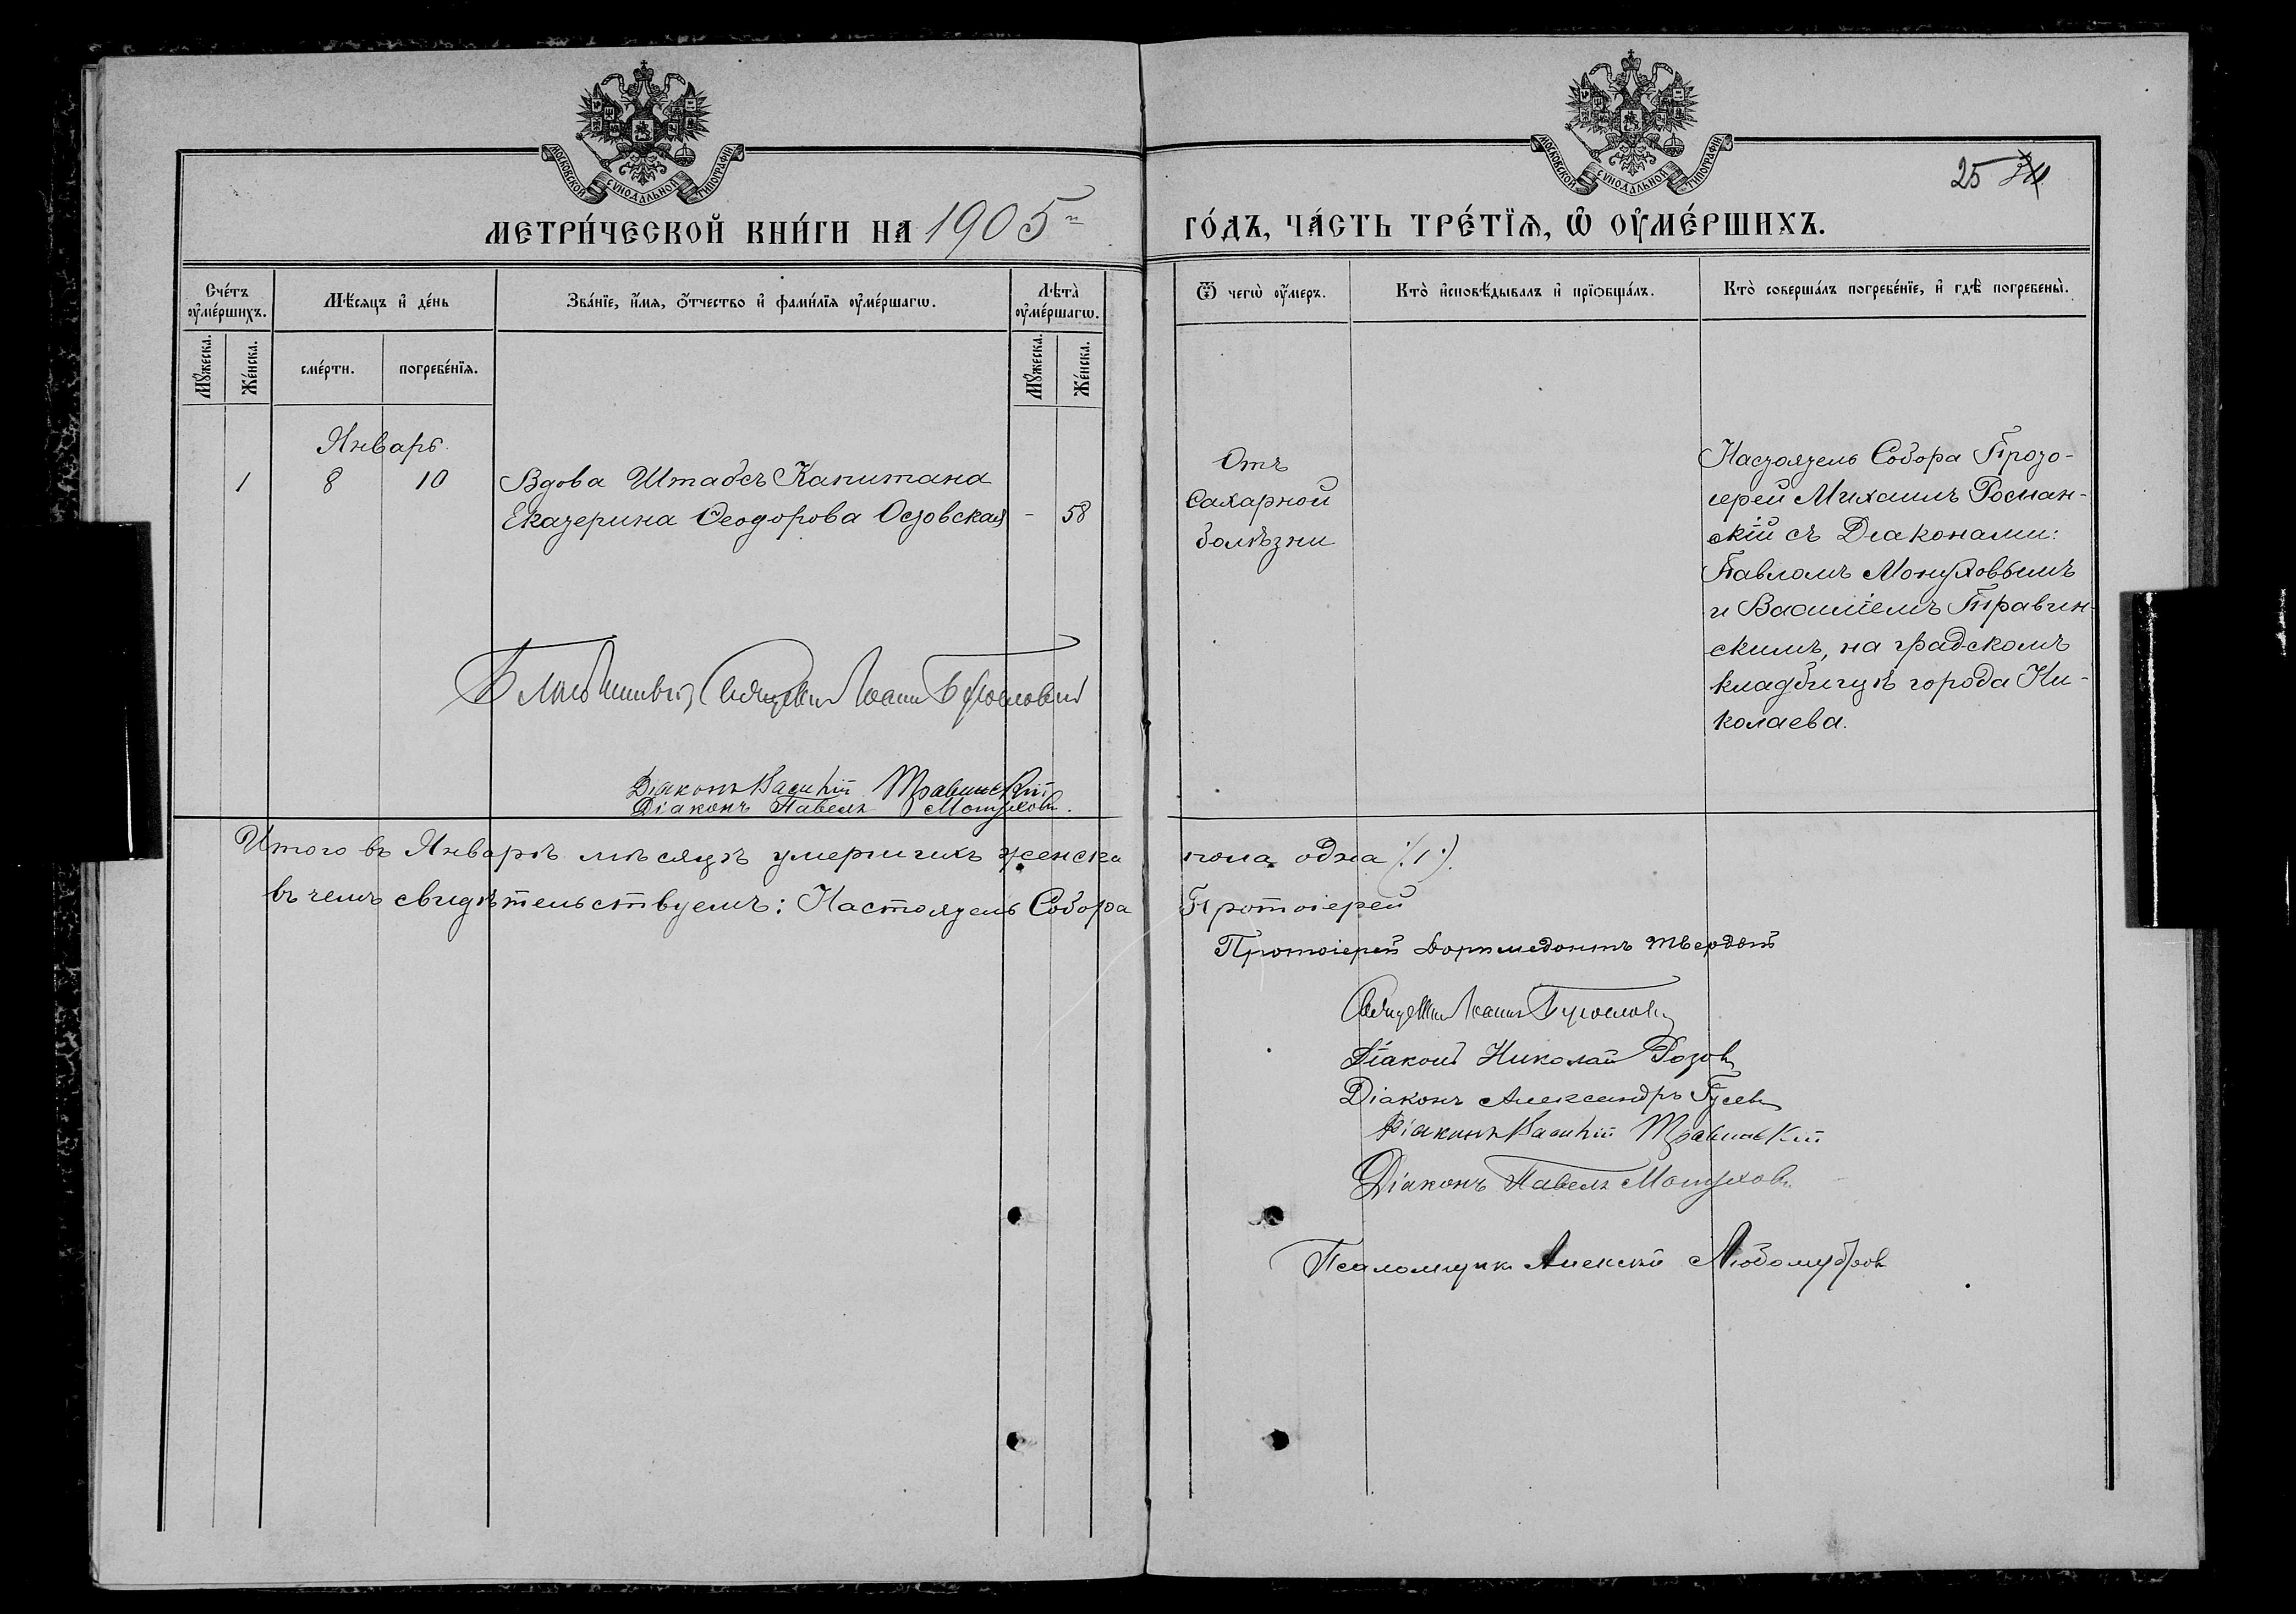 МОСКОВСКОЙ СѴНОДАЛЬНОЙ ТИПОГРАФІИ
МОСКОВСКОЙ СѴНОДАЛЬНОЙ ТИПОГРАФІИ
25
МЕТРИ́ЧЕСКОЙ КНИ́ГИ НА 1905 го́дъ, ча́сть тре́тїѧ, ѡ҆ оу҆ме́ршихъ.
Сче́тъ оу҆ме́ршихъ.
Мꙋ́жеска.
Же́нска.
Мѣ́сѧцъ и҆ де́нь
сме́рти.
погребе́нїѧ.
Зва́нїе, и҆́мѧ, ѻ҆́тчество и҆ фами́лїѧ оу҆ме́ршагѡ.
Лѣта̀ оу҆ме́ршагѡ.
Мꙋ́жеска.
Же́нска.
Ѿ чегѡ̀ оу҆́меръ.
Кто̀ и҆сповѣ́дывалъ и҆ прїѻбща́лъ.
Кто̀ соверша́лъ погребе́нїе, и҆ гдѣ̀ погребены̀.
Январь
1 8 10 Вдова Штабсъ Капитана
Екатерина Ѳеодорова Осовская - 58
Отъ
Сахарной
болѣзни
Настоятель Собора Прото-
іерей Михаилъ Росман-
скій съ Діаконами:
Павломъ Мотуховымъ
и Василіемъ Травин-
скимъ, на градскомъ
кладбищѣ города Ни-
колаева.
Священникъ Іоаннъ
Діаконъ Василій Травинскій
Діаконъ Павелъ Мотуховъ.
Итого въ Январѣ мѣсяцѣ умершихъ женска пола одна /.1./.
въ чемъ свидѣтельствуемъ: Настоятель Собора Протоіерей
Протоіерей Доримедонтъ Твердый
Священникъ Іоаннъ
Діаконъ Николай Розовъ
Діаконъ Александръ Гусевъ
Діаконъ Василій Травинскій
Діаконъ Павелъ Мотуховъ
Псаломщикъ Алексій Любомудровъ